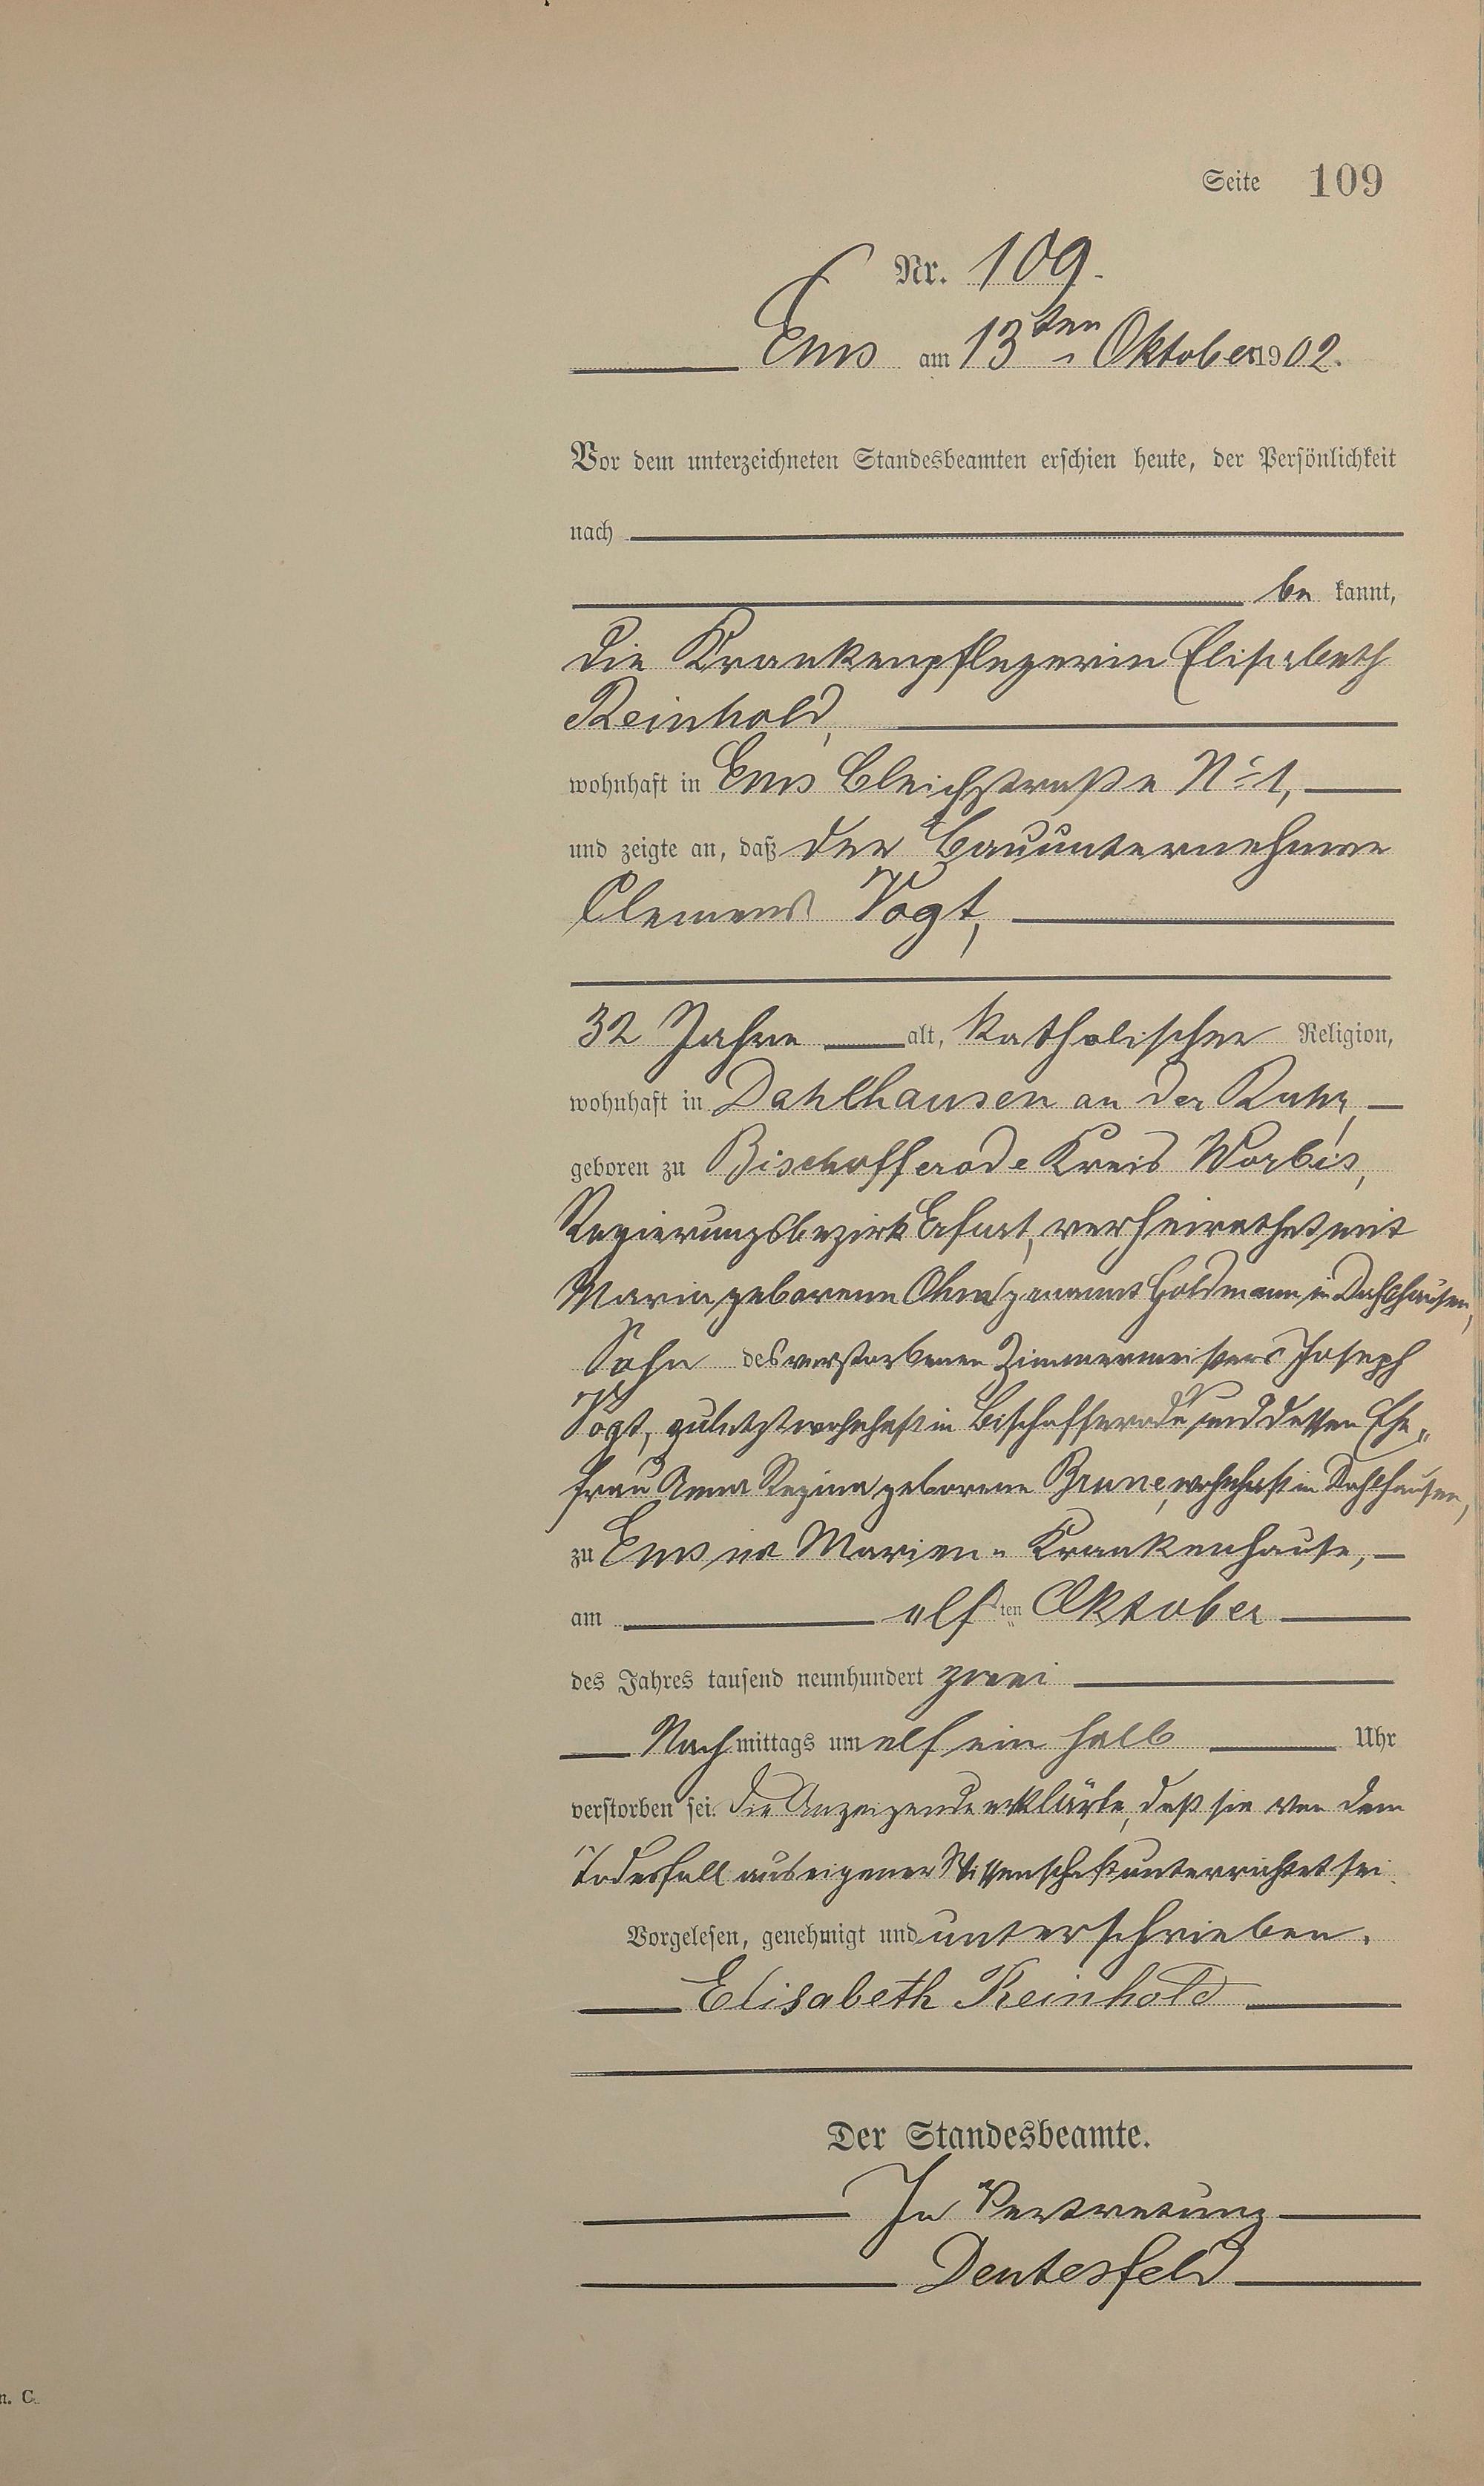 Seite 109
Nr. 109.
Ems am 13ten Oktober 1902.
Vor dem unterzeichneten Standesbeamten erschien heute, der Persönlichkeit
nach
be kannt,
die Krankenpflegerin Elisabeth
Reinhold,
wohnhaft in Ems Bleichstraße No 1,
und zeigte an, daß der Bauunternehmer
Clemens Vogt,
32 Jahre alt, katholischer Religion,
wohnhaft in Dahlhausen an der Ruhr,
geboren zu Bischofferode Kreis Worbis,
Regierungsbezirk Erfurt, verheirathet mit
Maria geborene Ohm genannt Goldmann in Dahlhausen,
Sohn des verstorbenen Zimmermeisters Joseph
Vogt, zuletzt wohnhaft in Bischofferode und dessen Ehe„
frau Anna Regina geborene Brune, wohnhaft in Dahlhausen,
zu Ems im Marien-Krankenhause,
am elf ten Oktober
des Jahres tausend neunhundert zwei
Nach mittags um elf ein halb Uhr
verstorben sei. Die Anzeigende erklärte, daß sie von dem
Todesfall aus eigener Wissenschaft unterrichtet sei.
Vorgelesen, genehmigt und unterschrieben.
Elisabeth Reinhold
Der Standesbeamte.
In Vertretung
Dentesfeld
n. C.